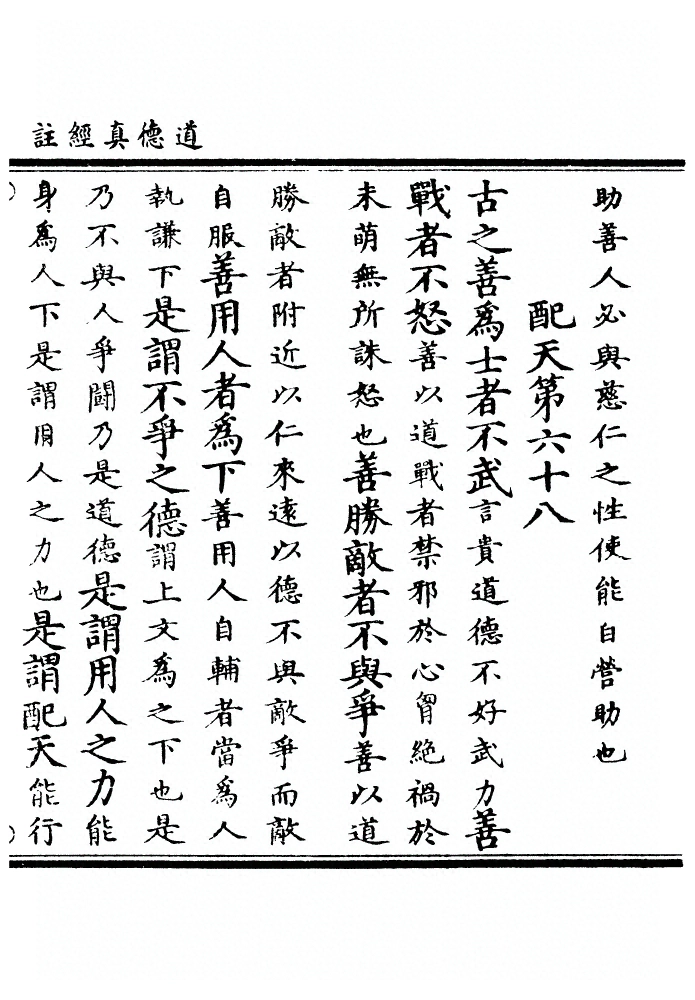 道德真經註
助善人必與慈仁之性使能自營助也
配天第六十八
古之善爲士者不武言貴道德不好武力善
戰者不怒善以道戰者禁邪於心胷絕禍於
未萌無所誅怒也善勝敵者不與爭善以道
勝敵者附近以仁來遠以德不與敵爭而敵
自服善用人者爲下善用人自輔者當爲人
執謙下是謂不爭之德謂上文爲之下也是
乃不與人爭鬪乃是道德是謂用人之力能
身爲人下是謂用人之力也是謂配天能行